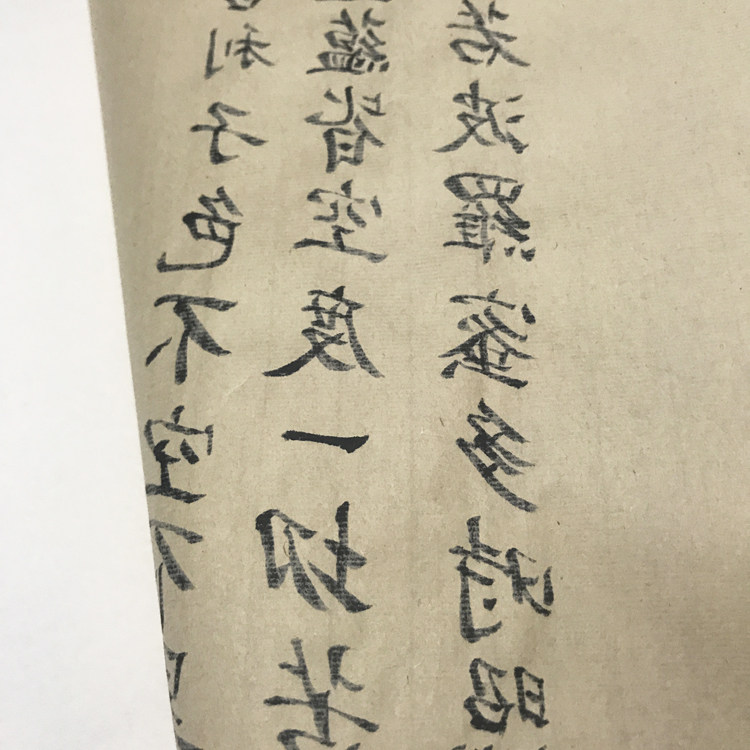 若波羅蜜多時照
蘊皆空度一切苦
利子色不空不